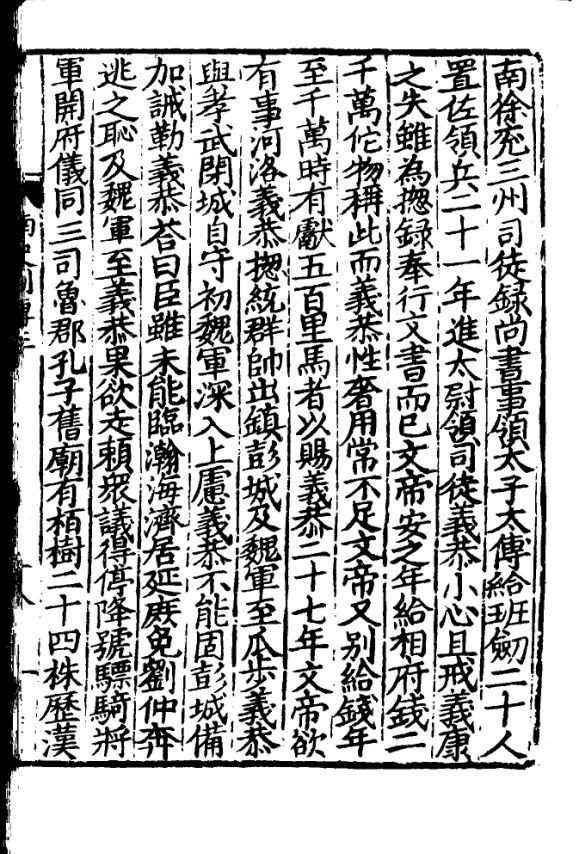 南徐兖三州司徒録尚書事領太子太傅給班劒二十人
置佐領兵二十一年進太尉領司徒義恭小心且戒義康
之失雖為揔録奉行文書而已文帝安之年給相府錢二
千萬佗物稱此而義恭性奢用常不足文帝又別給錢年
至千萬時有獻五百里馬者以賜義恭二十七年文帝欲
有事河洛義恭揔統群帥出鎮彭城及魏軍至瓜步義恭
與孝武閉城自守初魏軍深入上慮義恭不能固彭城備
加誡勒義恭荅曰臣雖未能臨瀚海濟居延庶免劉仲奔
逃之恥及魏軍至義恭果欲走頼衆議得停降號驃騎將
軍開府儀同三司魯郡孔子舊廟有栢樹二十四株歷漢